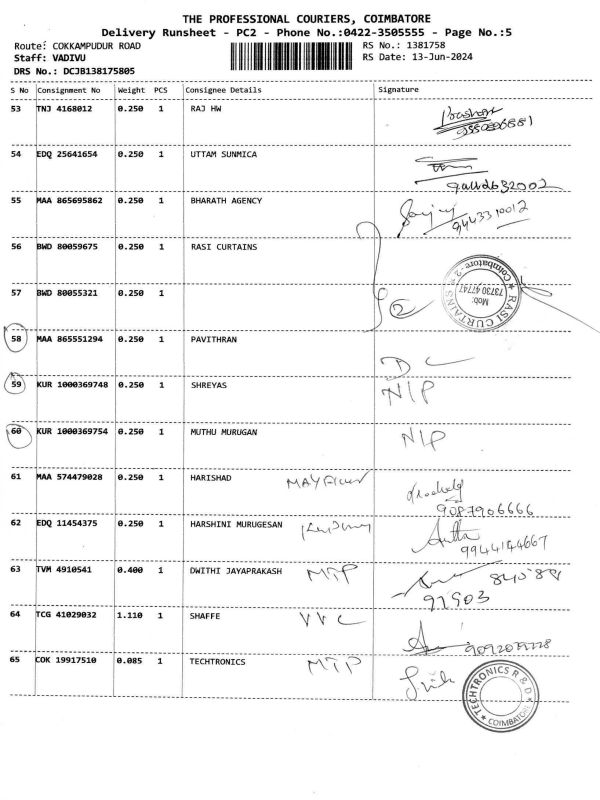 THE PROFESSIONAL COURIERS, COIMBATORE
Delivery Runsheet - PC2 - Phone No.:0422-3505555 - Page No.:5
Route: COKKAMPUDUR ROAD RS No.: 1381758
Staff: VADIVU RS Date: 13-Jun-2024
DRS No.: DCJB138175805
S No Consignment No Weight PCS Consignee Details Signature
53 TNJ 4168012 0.250 1 RAJ HW
54 EDQ 25641654 0.250 1 UTTAM SUNMICA
55 MAA 865695862 0.250 1 BHARATH AGENCY
9443310012
56 BWD 80059675 0.250 1 RASI CURTAINS
RASI CURTAINS Coimbatore-2 Mob: 73730 47747
57 BWD 80055321 0.250 1 2
58 MAA 865551294 0.250 1 PAVITHRAN
DC
59 KUR 1000369748 0.250 1 SHREYAS N/P
60 KUR 1000369754 0.250 1 MUTHU MURUGAN N/P
61 MAA 574479028 0.250 1 HARISHAD
9087906666
62 EDQ 11454375 0.250 1 HARSHINI MURUGESAN
9944144667
63 TVM 4910541 0.400 1 DWITHI JAYAPRAKASH MTP
64 TCG 41029032 1.110 1 SHAFFE VVC
65 COK 19917510 0.085 1 TECHTRONICS MTP
TECHTRONICS R & D COIMBATORE